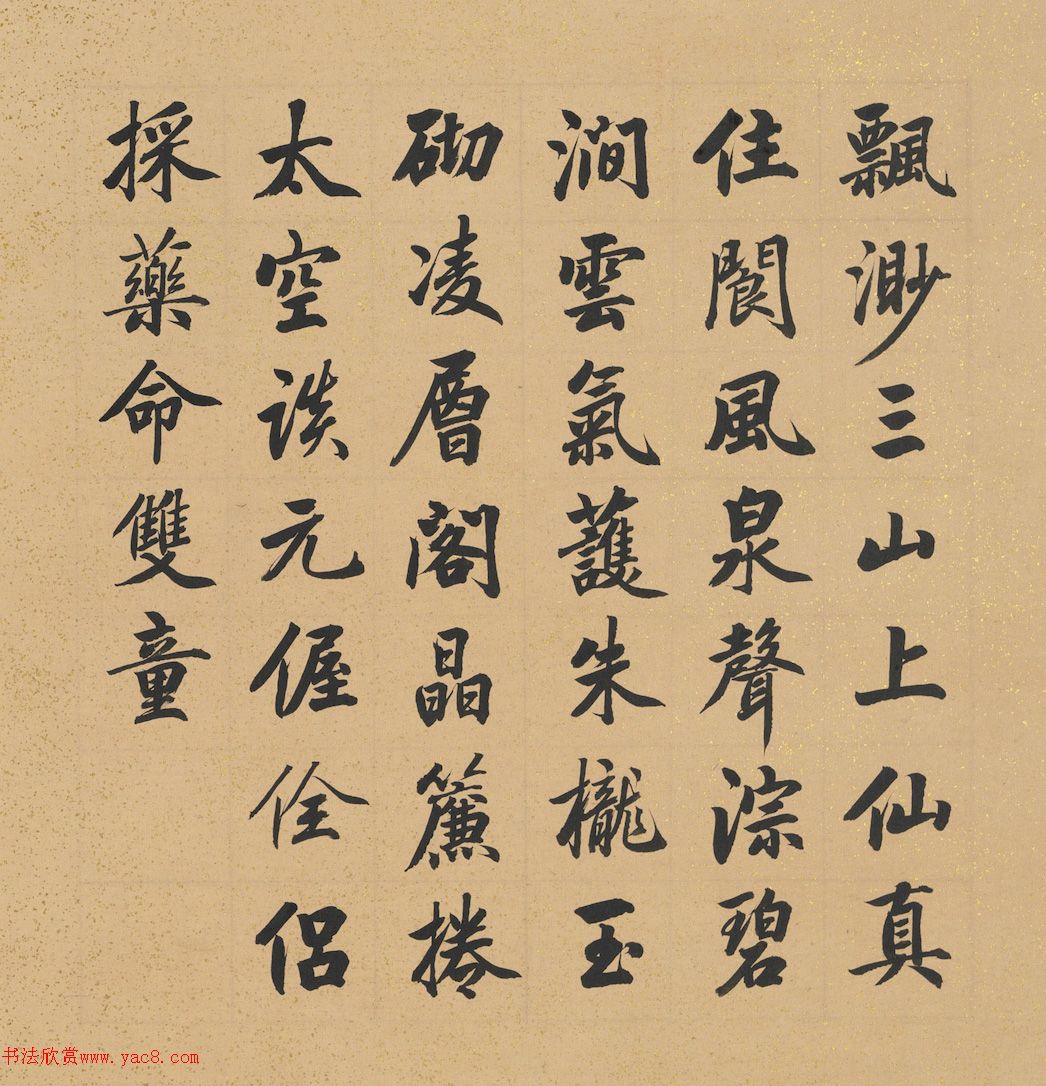 飄渺三山上仙真
住閬風泉聲淙碧
澗雲氣護朱櫳玉
砌凌層閣晶簾捲
太空談元偓佺侶
採藥命雙童
书法欣赏www.yac8.com